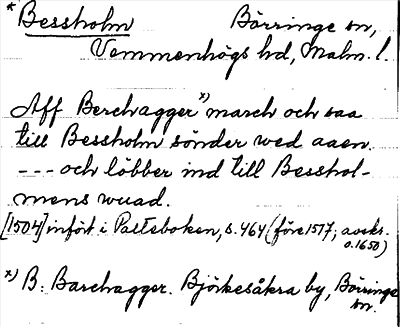 * Bessholm Börringe sn,
Vemmenhögs hd, Malm. l.
Aff Berchagger x) march och saa
till Bessholm sönder wed aaen.
--- och löbber ind till Besshol-
mens wuad.
[1504] infört i Pasteboken, s. 464 (före 1517; avskr.
o. 1650)
x) B: Barchagger. Björkesåkra by, Börringe
sn.